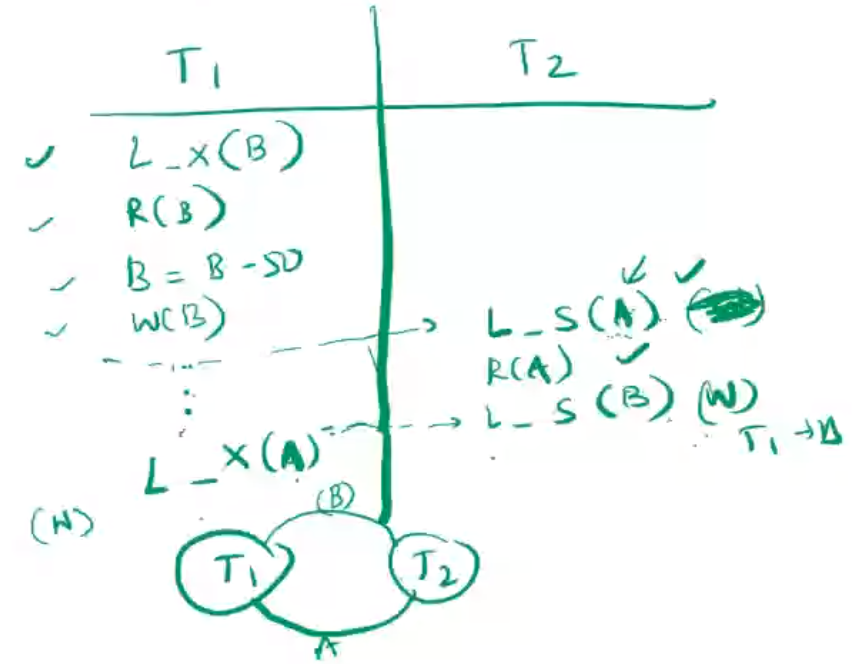 T1 T2
✓ L_X(B)
✓ R(B)
✓ B = B - 50
✓ W(B)
L_S(A) ✓
R(A) ✓
L_S(B) (W)
T1 →
L_X(A)
(W)
(B)
T1 T2
A